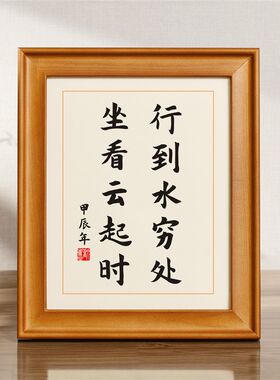 行到水穷处
坐看云起时
甲辰年